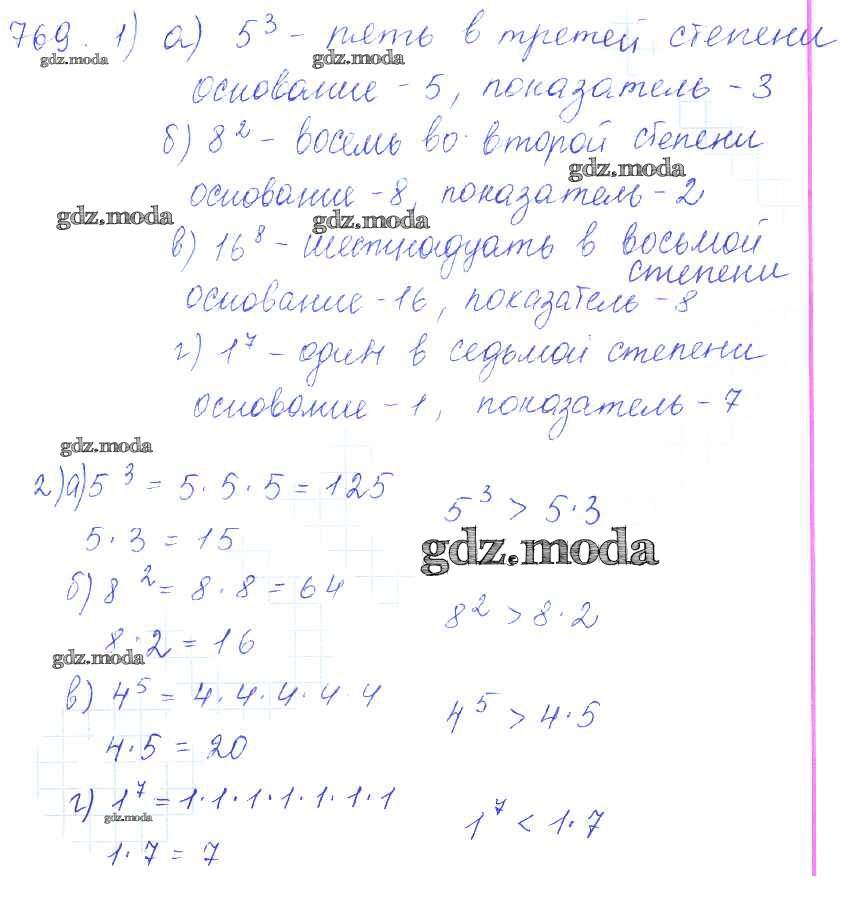 769. 1) а) 5³ - пять в третей степени
gdz.moda gdz.moda
основание - 5, показатель - 3
б) 8² - восемь во второй степени
gdz.moda
основание - 8, показатель - 2
gdz.moda gdz.moda
в) 16⁸ - шестнадцать в восьмой
степени
основание - 16, показатель - 8
г) 1⁷ - один в седьмой степени
основание - 1, показатель - 7
gdz.moda
2) а) 5³ = 5·5·5 = 125 5³ > 5·3
5·3 = 15
gdz.moda
б) 8² = 8·8 = 64 8² > 8·2
8·2 = 16
gdz.moda
в) 4⁵ = 4·4·4·4·4 4⁵ > 4·5
4·5 = 20
г) 1⁷ = 1·1·1·1·1·1·1 1⁷ < 1·7
gdz.moda
1·7 = 7